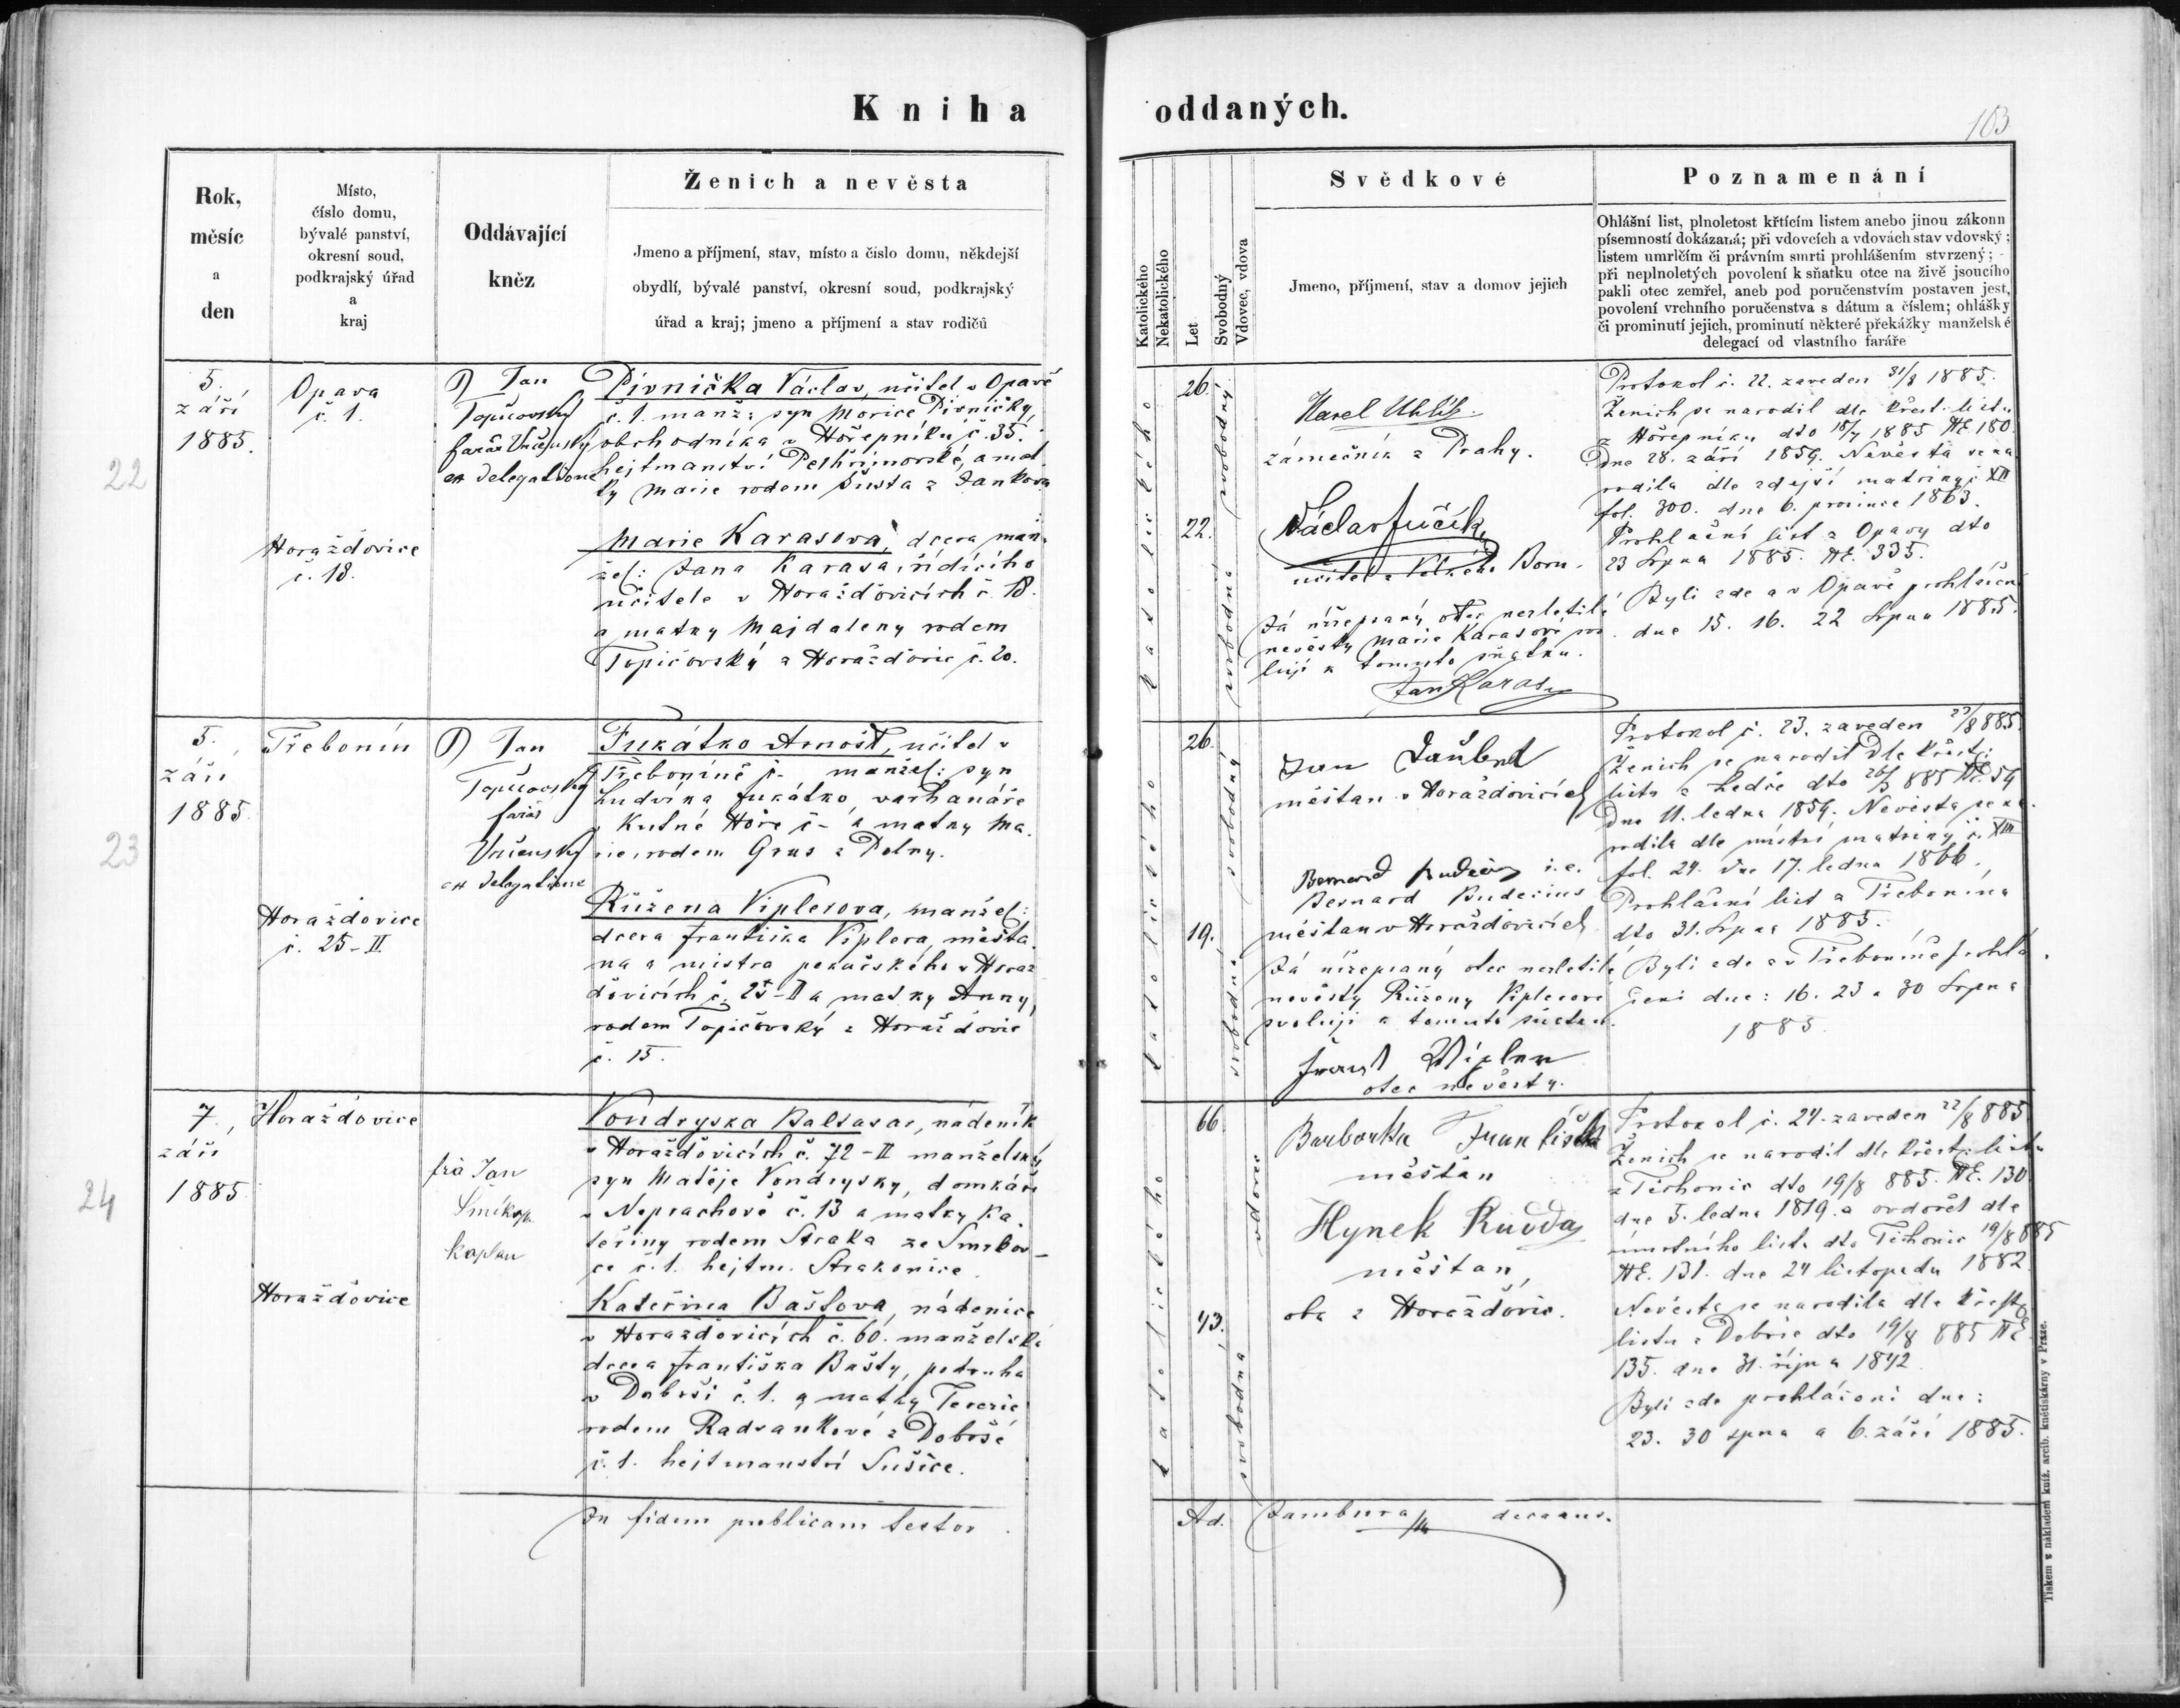 Kniha oddaných.
103
Rok,
měsíc
a
den
Místo,
číslo domu,
bývalé panství,
okresní soud,
podkrajský úřad
a
kraj
Oddávající
kněz
Ženich a nevěsta
Jmeno a příjmení, stav, místo a číslo domu, někdejší
obydlí, bývalé panství, okresní soud, podkrajský
úřad a kraj; jmeno a příjmení a stav rodičů
Katolického
Nekatolického
Let
Svobodný
Vdovec, vdova
Svědkové
Jmeno, příjmení, stav a domov jejich
Poznamenání
Ohlášní list, plnoletost křtícím listem anebo jinou zákonn
písemností dokázaná; při vdovcích a vdovách stav vdovský;
listem umrlčím či právním smrti prohlášením stvrzený;
při neplnoletých povolení k sňatku otce na živě jsoucího
pakli otec zemřel, aneb pod poručenstvím postaven jest,
povolení vrchního poručenstva s dátum a číslem; ohlášky
či prominutí jejich, prominutí některé překážky manželské
delegací od vlastního faráře
22
5.
září
1885.
Opava
č. 1.
Horažďovice
č. 18.
Jan
Topičovský
farář
ex delegatione
Pivnička Václav, učitel v Opavě
č. 1. manž: syn Morice Pivničky,
obchodníka v Hořepníku č. 35.
hejtmanství a mat
ky Marie rodem Šusta z Jankova
Marie Karasova, dcera man
žel: Jana Karasa, řídícího
učitele v Horažďovicích č. 18.
a matky Majdaleny rodem
Topičovský z Horažďovic č. 20.
katolického
26.
svobodný
22.
svobodna
Karel Uhlíř
zámečník z Prahy.
Václav Fučík
učitel z Boru.
Já nížepsaný otec nezletilé
nevěsty Marie Karasové svo
luji k tomuto sňatku.
Jan Karas
Protokol č. 22. zaveden 31/8 1885.
Ženich se narodil dle křest: listu
z Hořepníku dto 18/7 1885 NE 180.
Dne 28. září 1859. Nevěsta se na
rodila dle zdejší matriky č XII
fol. 300. dne 6. prosince 1863.
Prohlašní list z Opavy dto
23 Srpna 1885. NE. 335.
Byli zde a v Opavě prohlášeni
dne 15. 16. 22 Srpna 1885.
23
5.
září
1885.
Třebonín
Horažďovice
č. 25-II.
Jan
Topičovský
farář
ex delegatione
Fukátko Arnošt, učitel v
Třeboníně č- manžel: syn
Ludvíka Fukátko, varhanáře
v Kutné Hoře č- a matky Ma
rie, rodem Grus z Polny.
Růžena Viplerova, manžel:
dcera Františka Viplera, měšťa
na a mistra pekařského v Horaž
ďovicích č. 25-II a matky Anny,
rodem Topičovský z Horažďovic
č. 15.
katolického
26.
svobodný
19.
svobodna
Jan
měšťan v Horažďovicích
i. e.
Bernard Buderius
měšťan v Horažďovicích
Já nížepsaný otec nezletilé
nevěsty Růženy Viplerove
svoluji k tomuto sňatku.
Vipler
otec nevěsty.
Protokol č. 23. zaveden 22/8 885.
Ženich se narodil dle křest:
listu z Ledče dto 26/5 885 NE. 54
Dne 11. ledna 1859. Nevěsta se na
rodila dle místní matriky č. XIII
fol. 24. dne 17. ledna 1866.
Prohlašní list z Třebonína
dto 31. Srpna 1885.
Byli zde a v Třeboníně prohlá
šeni dne: 16. 23 a 30 Srpna
1885.
24
7.
září
1885
Horažďovice
Horažďovice
Jan
kaplan
Vondryska Baltasar, nádeník
v Horažďovicích č. 72-II manželský
syn Matěje Vondrysky, domkáře
v Neprachově č. 13 a matky Ka
teřiny rodem Straka ze Smrkov
ce č. 1. hejtm. Strakonice.
Kateřina Baštova, nádenice
v Horažďovicích č. 60. manželská
dcera Františka Bašty, podruha
v Dobrši č. 1. a matky Terezie
rodem Radvankové z Dobrše
č. 1. hejtmanství Sušice.
katolického
66.
vdovec
43.
svobodna
Barborka František
měšťan
Hynek
měšťan,
oba z Horažďovic.
Protokol č. 24. zaveden 22/8 885
Ženich se narodil dle křest: listu
z Těchonic dto 19/8 885. NE. 130
dne 5. ledna 1819. a ovdověl dle
úmrtního listu dto Těchonic 19/8 885
NE. 131. dne 24 listopadu 1882
Nevěsta se narodila dle křest:
listu z Dobrše dto 19/8 885 NE
135. dne 31. října 1842.
Byli zde prohlášeni dne:
23. 30 srpna a 6. září 1885.
In fidem publicam testor
Ad. Jambura decanus.
Tiskem a nákladem kníž. arcib. knětiskárny v Praze.